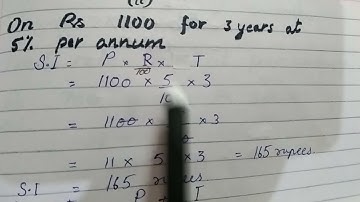 (ii)
On Rs 1100 for 3 years at
5% per annum
S.I = P × R × T
100
= 1100 × 5 × 3
10
= 1100 × × 3
= 11 × 5 × 3 = 165 rupees.
S.I = 165 rupees.
P T